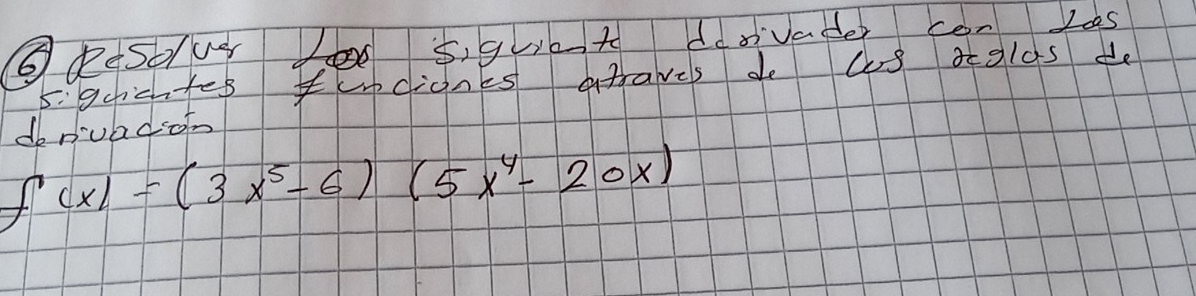 ⑥ Resolver Los siguient derivadas con Las
siguientes funciones atraves de las reglas de
derivación
f(x) = (3x⁵ - 6) (5x⁴ - 20x)